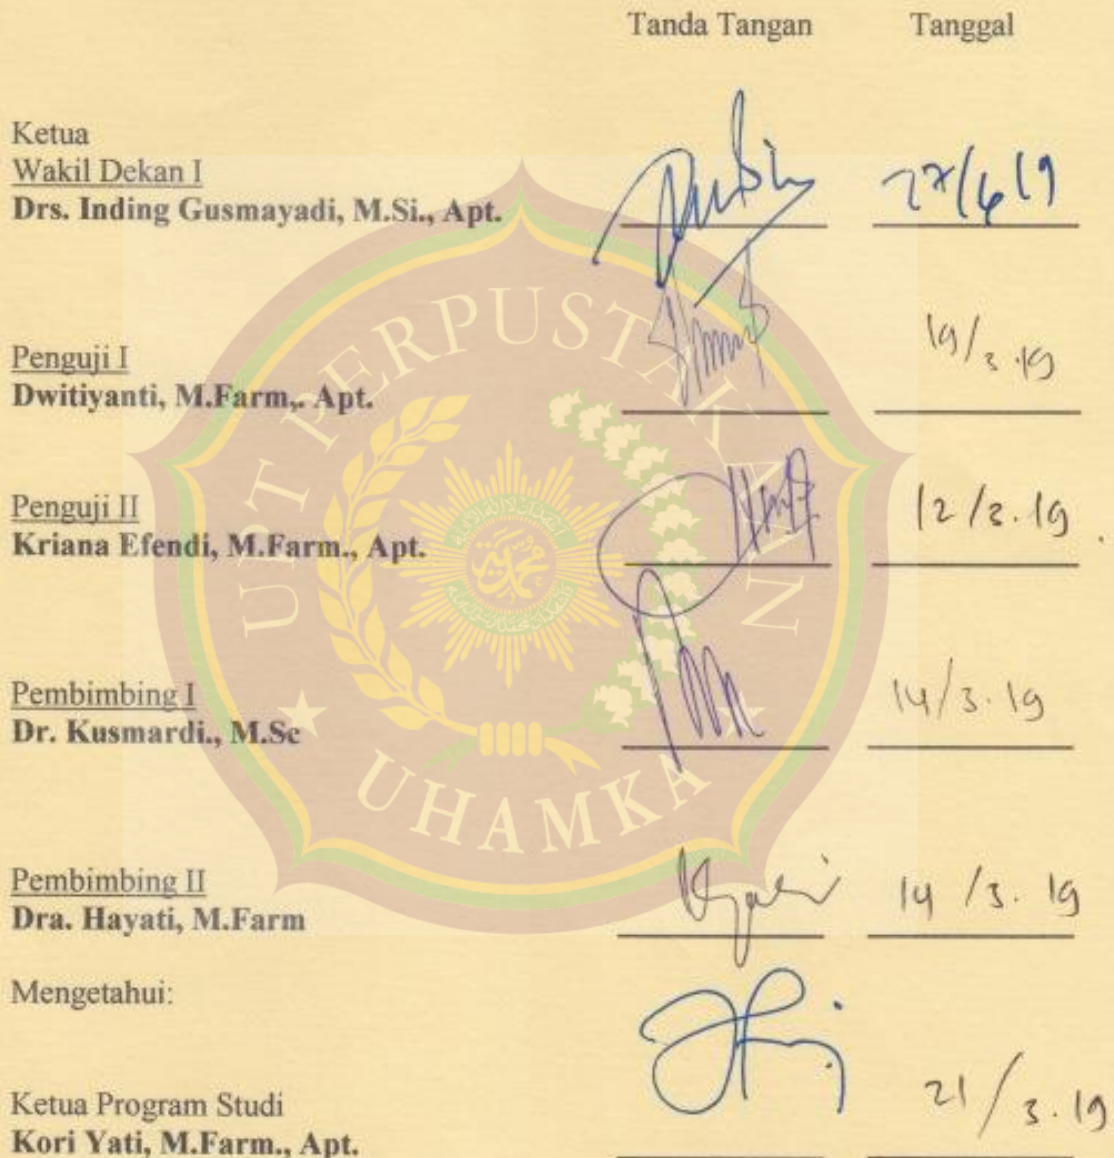 Tanda Tangan Tanggal
Ketua
Wakil Dekan I
Drs. Inding Gusmayadi, M.Si., Apt. 27/6 19
Penguji I
Dwitiyanti, M.Farm,. Apt. 19/3.19
Penguji II
Kriana Efendi, M.Farm., Apt. 12/3.19
Pembimbing I
Dr. Kusmardi., M.Sc 14/3.19
Pembimbing II
Dra. Hayati, M.Farm 14/3.19
Mengetahui:
Ketua Program Studi
Kori Yati, M.Farm., Apt. 21/3.19
UPT PERPUSTAKAAN
UHAMKA